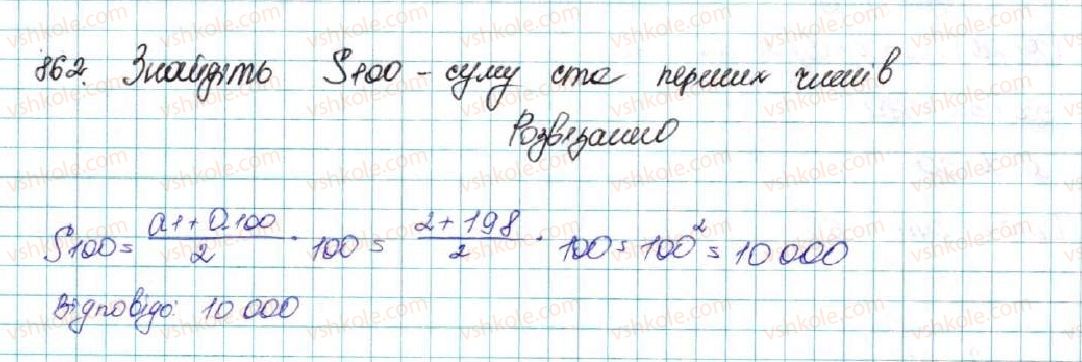 862. Знайдіть S100 - суму ста перших членів
Розв'язання
S100 = (a1 + a100)/2 · 100 = (2 + 198)/2 · 100 = 100² = 10 000
Відповідь: 10 000